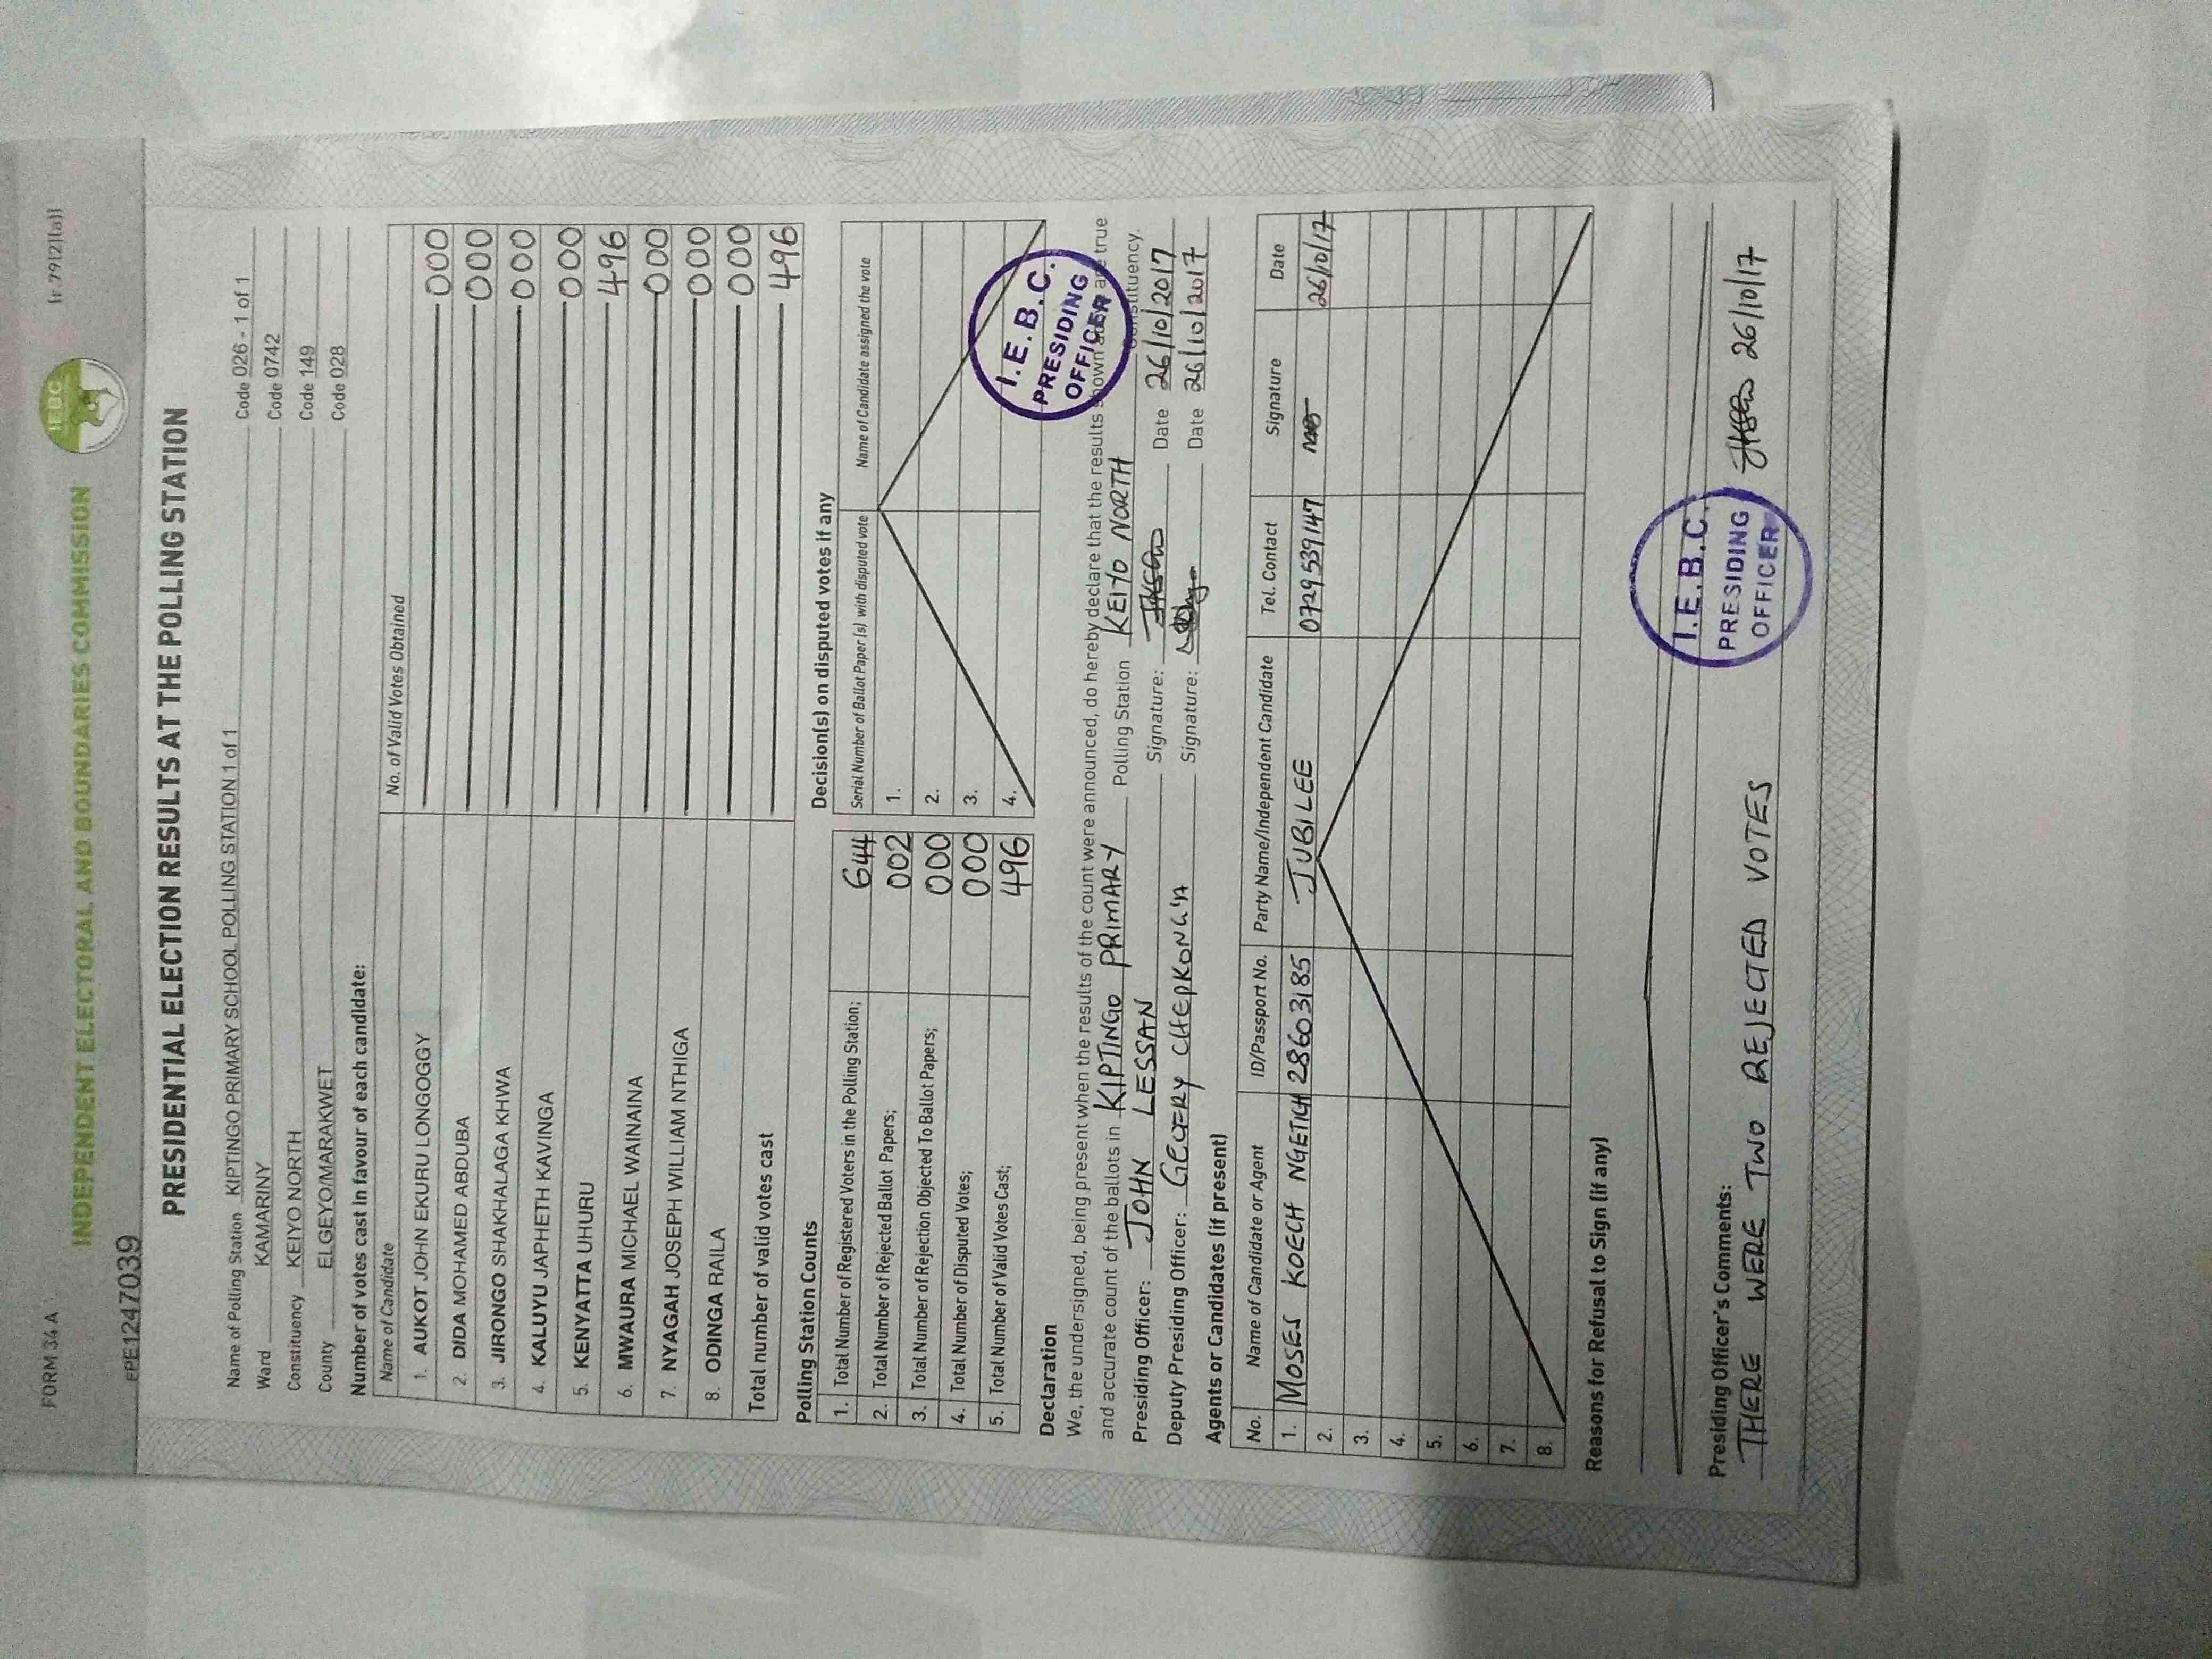 FORM 34 A
(r.79(2)(a))
INDEPENDENT ELECTORAL AND BOUNDARIES COMMISSION
IEBC
EPE1247039
PRESIDENTIAL ELECTION RESULTS AT THE POLLING STATION
Name of Polling Station KIPTINGO PRIMARY SCHOOL POLLING STATION 1 of 1 Code 026 - 1 of 1
Ward KAMARINY Code 0742
Constituency KEIYO NORTH Code 149
County ELGEYO/MARAKWET Code 028
Number of votes cast in favour of each candidate:
Name of Candidate No. of Valid Votes Obtained
1. AUKOT JOHN EKURU LONGOGGY 000
2. DIDA MOHAMED ABDUBA 000
3. JIRONGO SHAKHALAGA KHWA 000
4. KALUYU JAPHETH KAVINGA 000
5. KENYATTA UHURU 496
6. MWAURA MICHAEL WAINAINA 000
7. NYAGAH JOSEPH WILLIAM NTHIGA 000
8. ODINGA RAILA 000
Total number of valid votes cast 496
Polling Station Counts
1. Total Number of Registered Voters in the Polling Station; 644
2. Total Number of Rejected Ballot Papers; 002
3. Total Number of Rejection Objected To Ballot Papers; 000
4. Total Number of Disputed Votes; 000
5. Total Number of Valid Votes Cast; 496
Decision(s) on disputed votes if any
Serial Number of Ballot Paper(s) with disputed vote Name of Candidate assigned the vote
1.
2.
3.
4.
I.E.B.C.
PRESIDING
OFFICER
Declaration
We, the undersigned, being present when the results of the count were announced, do hereby declare that the results shown above are true
and accurate count of the ballots in KIPTINGO PRIMARY Polling Station KEIYO NORTH Constituency.
Presiding Officer: JOHN LESSAN Signature: Date 26/10/2017
Deputy Presiding Officer: CHEPKONG'A Signature: Date 26/10/2017
Agents or Candidates (if present)
No. Name of Candidate or Agent ID/Passport No. Party Name/Independent Candidate Tel. Contact Signature Date
1. MOSES KOECH NGETICH 28603185 JUBILEE 0729539147 26/10/17
2.
3.
4.
5.
6.
7.
8.
Reasons for Refusal to Sign (if any)
Presiding Officer's Comments:
THERE WERE TWO REJECTED VOTES 26/10/17
I.E.B.C.
PRESIDING
OFFICER